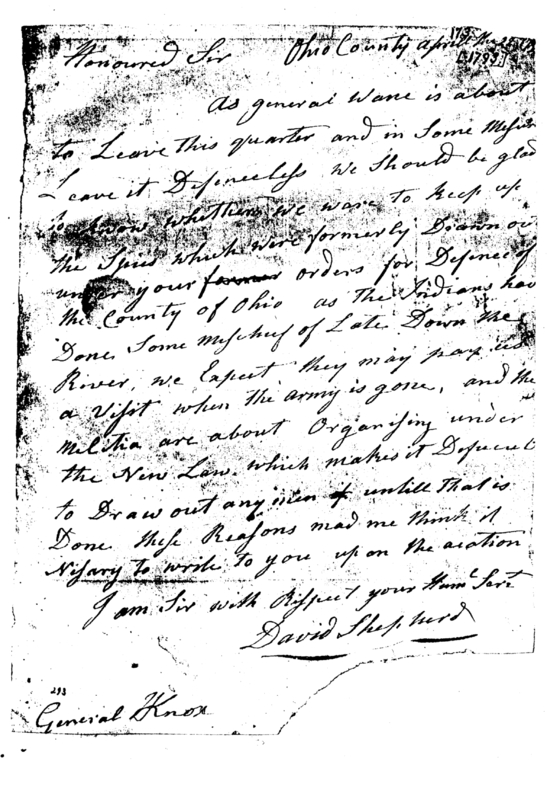 Honoured Sir Ohio County april the
[1793]
As general Wane is about
to Leave this quarter and in Some Mesur
Leave it Defenceless we Should be glad
to know whether we ware to keep up
the Spies which were formerly Drawn ou
under your former orders for Defence of
the County of Ohio as the Indians hav
Done Some Mischief of Late Down the
River, we Expect they may pay us
a Visit when the army is gone, and the
Melitia are about Organising under
the New Law which makes it Deficult
to Draw out any men untill that is
Done these Reasons mad me think it
Nisary to write to you up on the acation
I am Sir with Rispect your Humle Sert
David Shepherd
293
General Knox